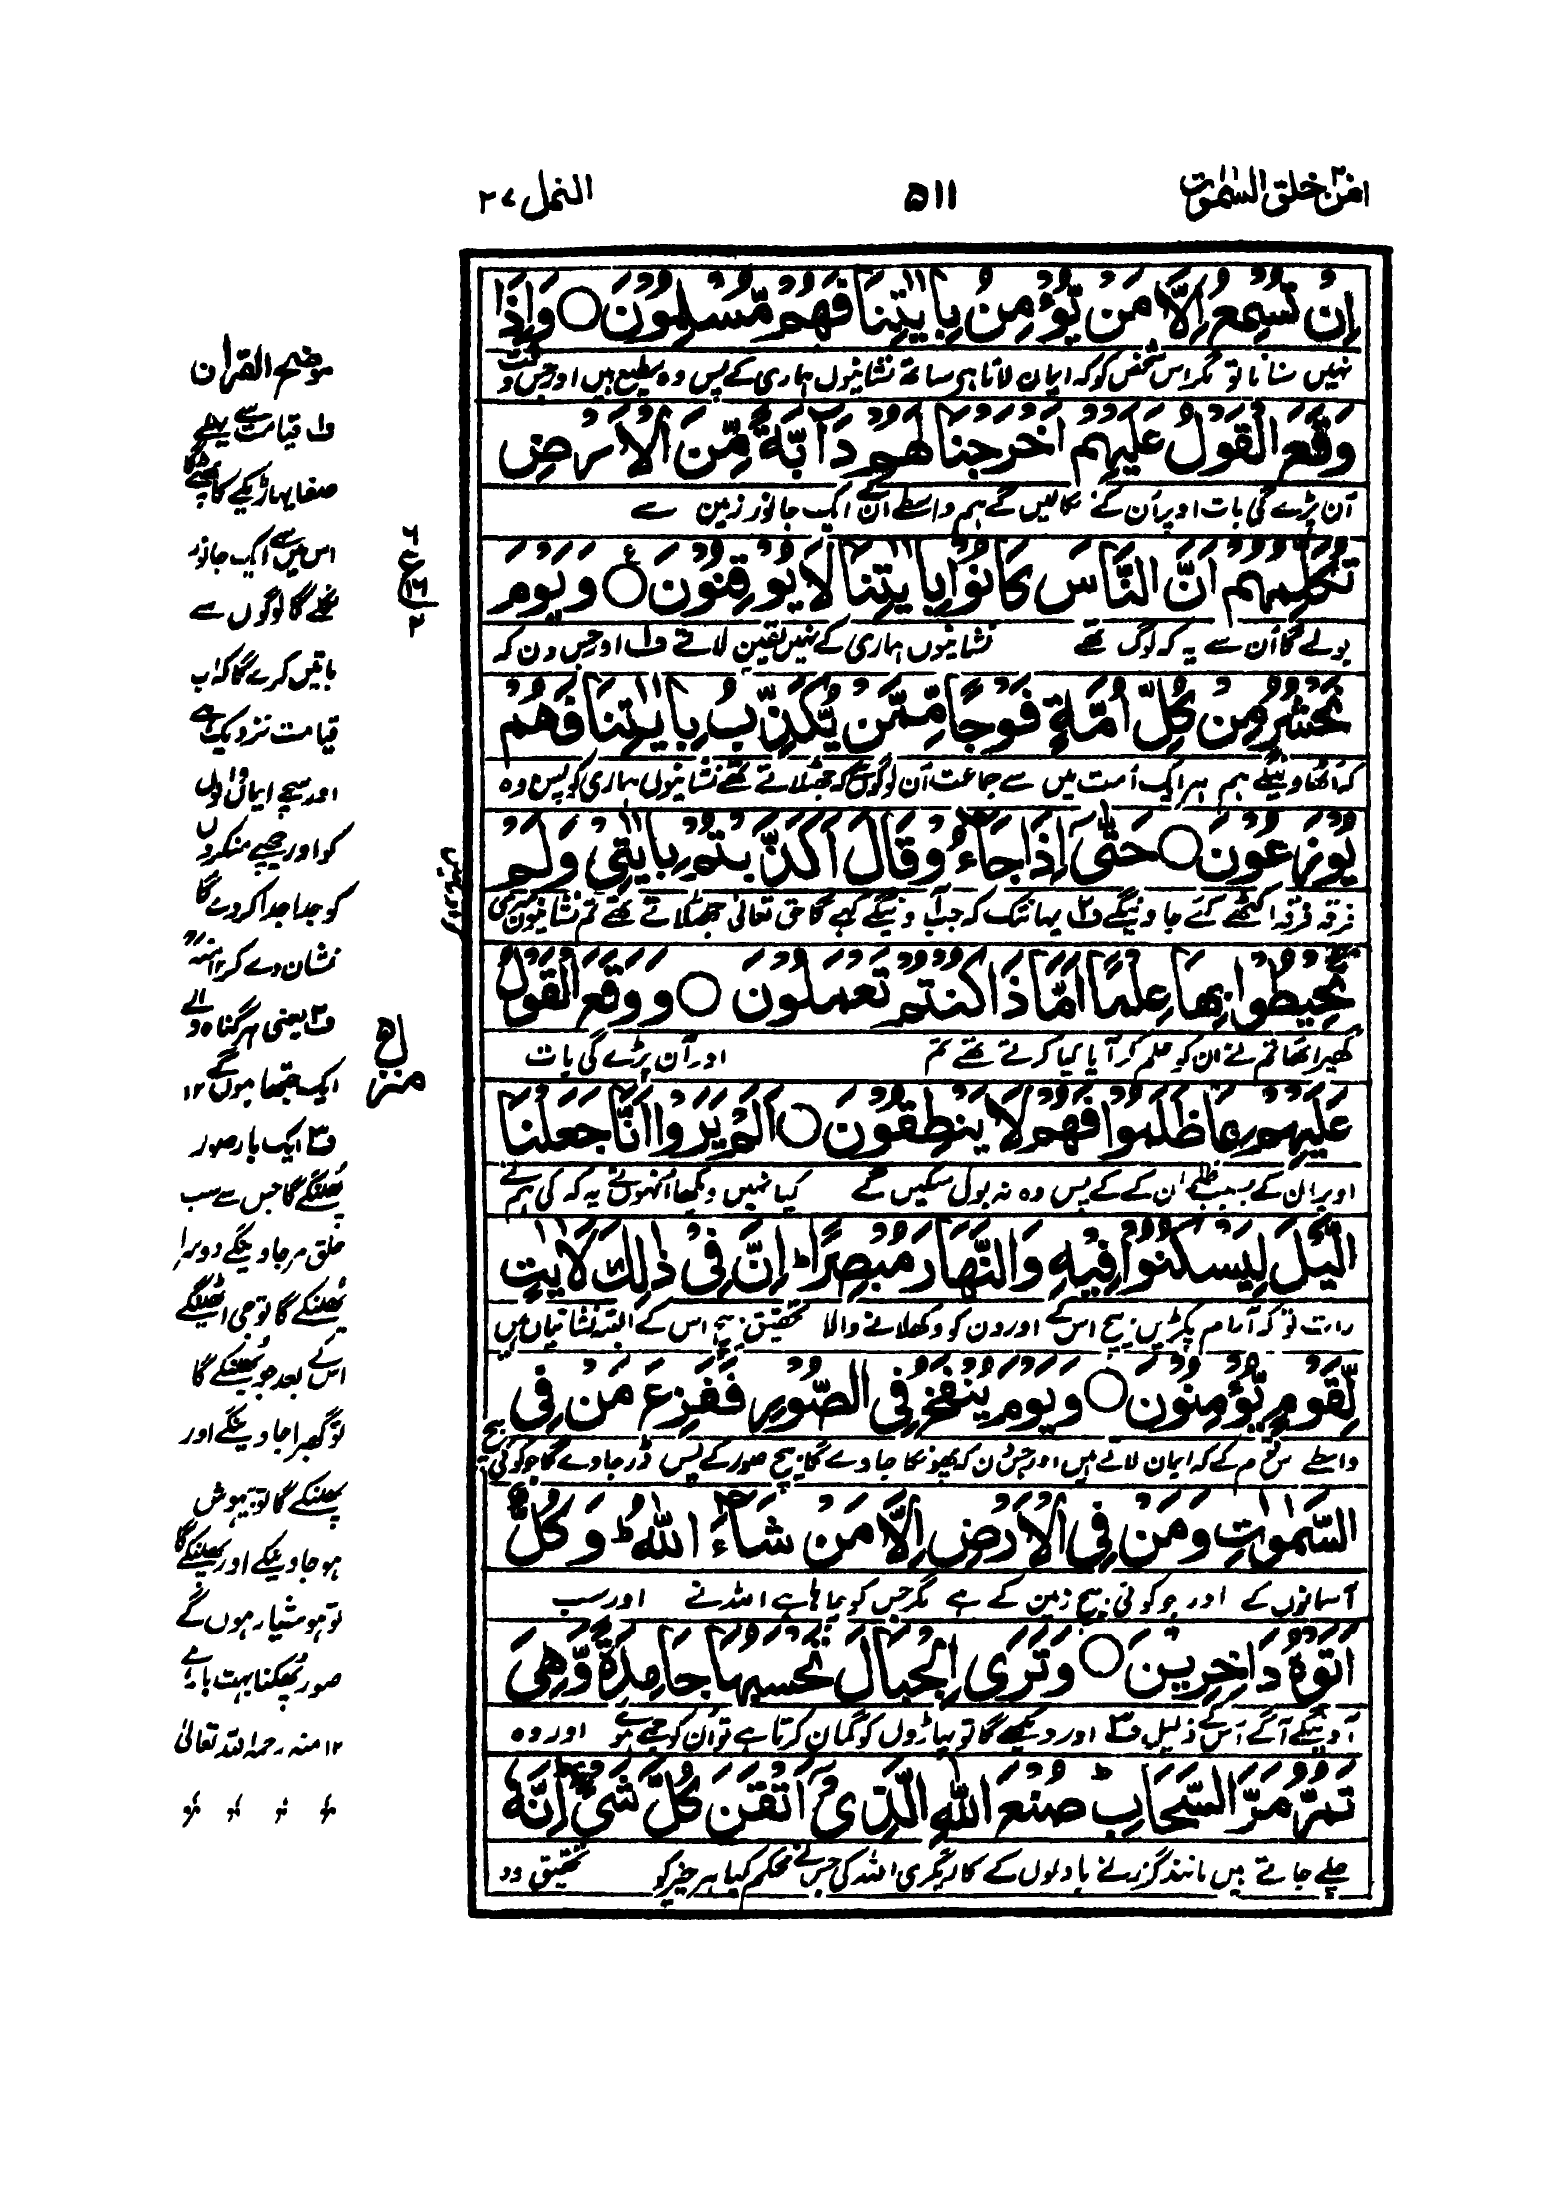 امن خلق السمٰوٰت ۲۰
۵۱۱
النمل ۲۷
اِنْ تُسْمِعُ اِلَّا مَنْ يُّؤْمِنُ بِاٰيٰتِنَا فَهُمْ مُّسْلِمُوْنَ ○ وَاِذَا
نہیں سناتا تو مگر اس شخص کو کہ ایمان لاتا ہی ساتھ نشانیوں ہماری کے پس وہ مطیع ہیں اور جس وقت
وَقَعَ الْقَوْلُ عَلَيْهِمْ اَخْرَجْنَا لَهُمْ دَآبَّةً مِّنَ الْاَرْضِ
آن پڑے گی بات اوپر اُن کے نکالیں گے ہم واسطے اُن کے ایک جانور زمین سے
تُكَلِّمُهُمْ اَنَّ النَّاسَ كَانُوْا بِاٰيٰتِنَا لَا يُوْقِنُوْنَ ○ وَيَوْمَ
بولے گا اُن سے یہ کہ لوگ تھے نشانیوں ہماری کے نہیں یقین لاتے ف۱ اور جس دن کہ
نَحْشُرُ مِنْ كُلِّ اُمَّةٍ فَوْجًا مِّمَّنْ يُّكَذِّبُ بِاٰيٰتِنَا فَهُمْ
کہ اٹھاوینگے ہم ہر ایک اُمت میں سے جماعت اُن لوگوں سے کہ جھٹلاتے تھے نشانیوں ہماری کو پس وہ
يُوْزَعُوْنَ ○ حَتّٰى اِذَا جَآءُوْ قَالَ اَكَذَّبْتُمْ بِاٰيٰتِيْ وَلَمْ
فرقہ فرقہ اکٹھے کئے جاوینگے ف۲ یہانتک کہ جب آوینگے کہے گا حق تعالیٰ جھٹلاتے تھے تم نشانیوں میری
تُحِيْطُوْا بِهَا عِلْمًا اَمَّاذَا كُنْتُمْ تَعْمَلُوْنَ ○ وَوَقَعَ الْقَوْلُ
گھیرا تھا تم نے ان کو علم کر آیا کیا کرتے تھے تم اور آن پڑے گی بات
عَلَيْهِمْ بِمَا ظَلَمُوْا فَهُمْ لَا يَنْطِقُوْنَ ○ اَلَمْ يَرَوْا اَنَّا جَعَلْنَا
اوپر ان کے بسبب ظلم اُن کے کے پس وہ نہ بول سکیں گے کیا نہیں دیکھا اُنہوں نے یہ کہ کی ہم نے
الَّيْلَ لِيَسْكُنُوْا فِيْهِ وَالنَّهَارَ مُبْصِرًا ط اِنَّ فِيْ ذٰلِكَ لَاٰيٰتٍ
رات تو کہ آرام پکڑیں بیچ اس کے اور دن کو دکھلانے والا تحقیق بیچ اس کے البتہ نشانیاں ہیں
لِّقَوْمٍ يُّؤْمِنُوْنَ ○ وَيَوْمَ يُنْفَخُ فِي الصُّوْرِ فَفَزِعَ مَنْ فِي
واسطے اس قوم کے کہ ایمان لاتے ہیں اور جس دن کہ پھونکا جاوے گا بیچ صور کے پس ڈر جاوے گا جو کوئی بیچ
السَّمٰوٰتِ وَمَنْ فِي الْاَرْضِ اِلَّا مَنْ شَآءَ اللّٰهُ ط وَكُلٌّ
آسمانوں کے اور جو کوئی بیچ زمین کے ہے مگر جس کو چاہا ہے اللہ نے اور سب
اَتَوْهُ دَاخِرِيْنَ ○ وَتَرَى الْجِبَالَ تَحْسَبُهَا جَامِدَةً وَّهِيَ
آوینگے آگے اُس کے ذلیل ف۳ اور دیکھے گا تو پہاڑوں کو گمان کرتا ہے تو اُن کو جمے ہوئے اور وہ
تَمُرُّ مَرَّ السَّحَابِ ط صُنْعَ اللّٰهِ الَّذِيْٓ اَتْقَنَ كُلَّ شَيْءٍ اِنَّهٗ
چلے جاتے ہیں مانند گزرنے بادلوں کے کاریگری اللہ کی جس نے محکم کیا ہر چیز کو تحقیق وہ
موضح القرآن
ف۱ قیامت سے پہلے
صفا پہاڑ مکے کا پھٹے گا
اس میں سے ایک جانور
نکلے گا لوگوں سے
باتیں کرے گا کہ اب
قیامت نزدیک ہے
اور سچے ایمان والوں
کو اور چھپے منکروں
کو جدا جدا کر دے گا
نشان دے کر ۱۲ منہ
ف۲ یعنی ہر گناہ والے
ایک جتھا ہوں گے ۱۲
ف۳ ایک بار صور
پھنکے گا جس سے سب
خلق مر جاوینگے دوسرا
پھنکے گا تو جی اٹھینگے
اس کے بعد جو پھنکے گا
تو گھبرا جاوینگے اور
پھنکے گا تو بیہوش
ہو جاوینگے اور پھنکے گا
تو ہوشیار ہوں گے
صور پھنکنا بہت بار ہے
۱۲ منہ رحمہ اللہ تعالیٰ
۶
ع
۱۶
۲
منزل ۵